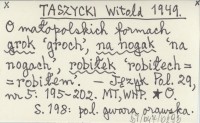 TASZYCKI Witold 1949.
O małopolskich formach
grok 'groch', na nogak 'na
nogach', robiłek robiłech =
= robiłem. — Język Pol. 29,
nr 5: 195-202. MT, WHP. ★O.
S. 198: pol. gwara orawska.